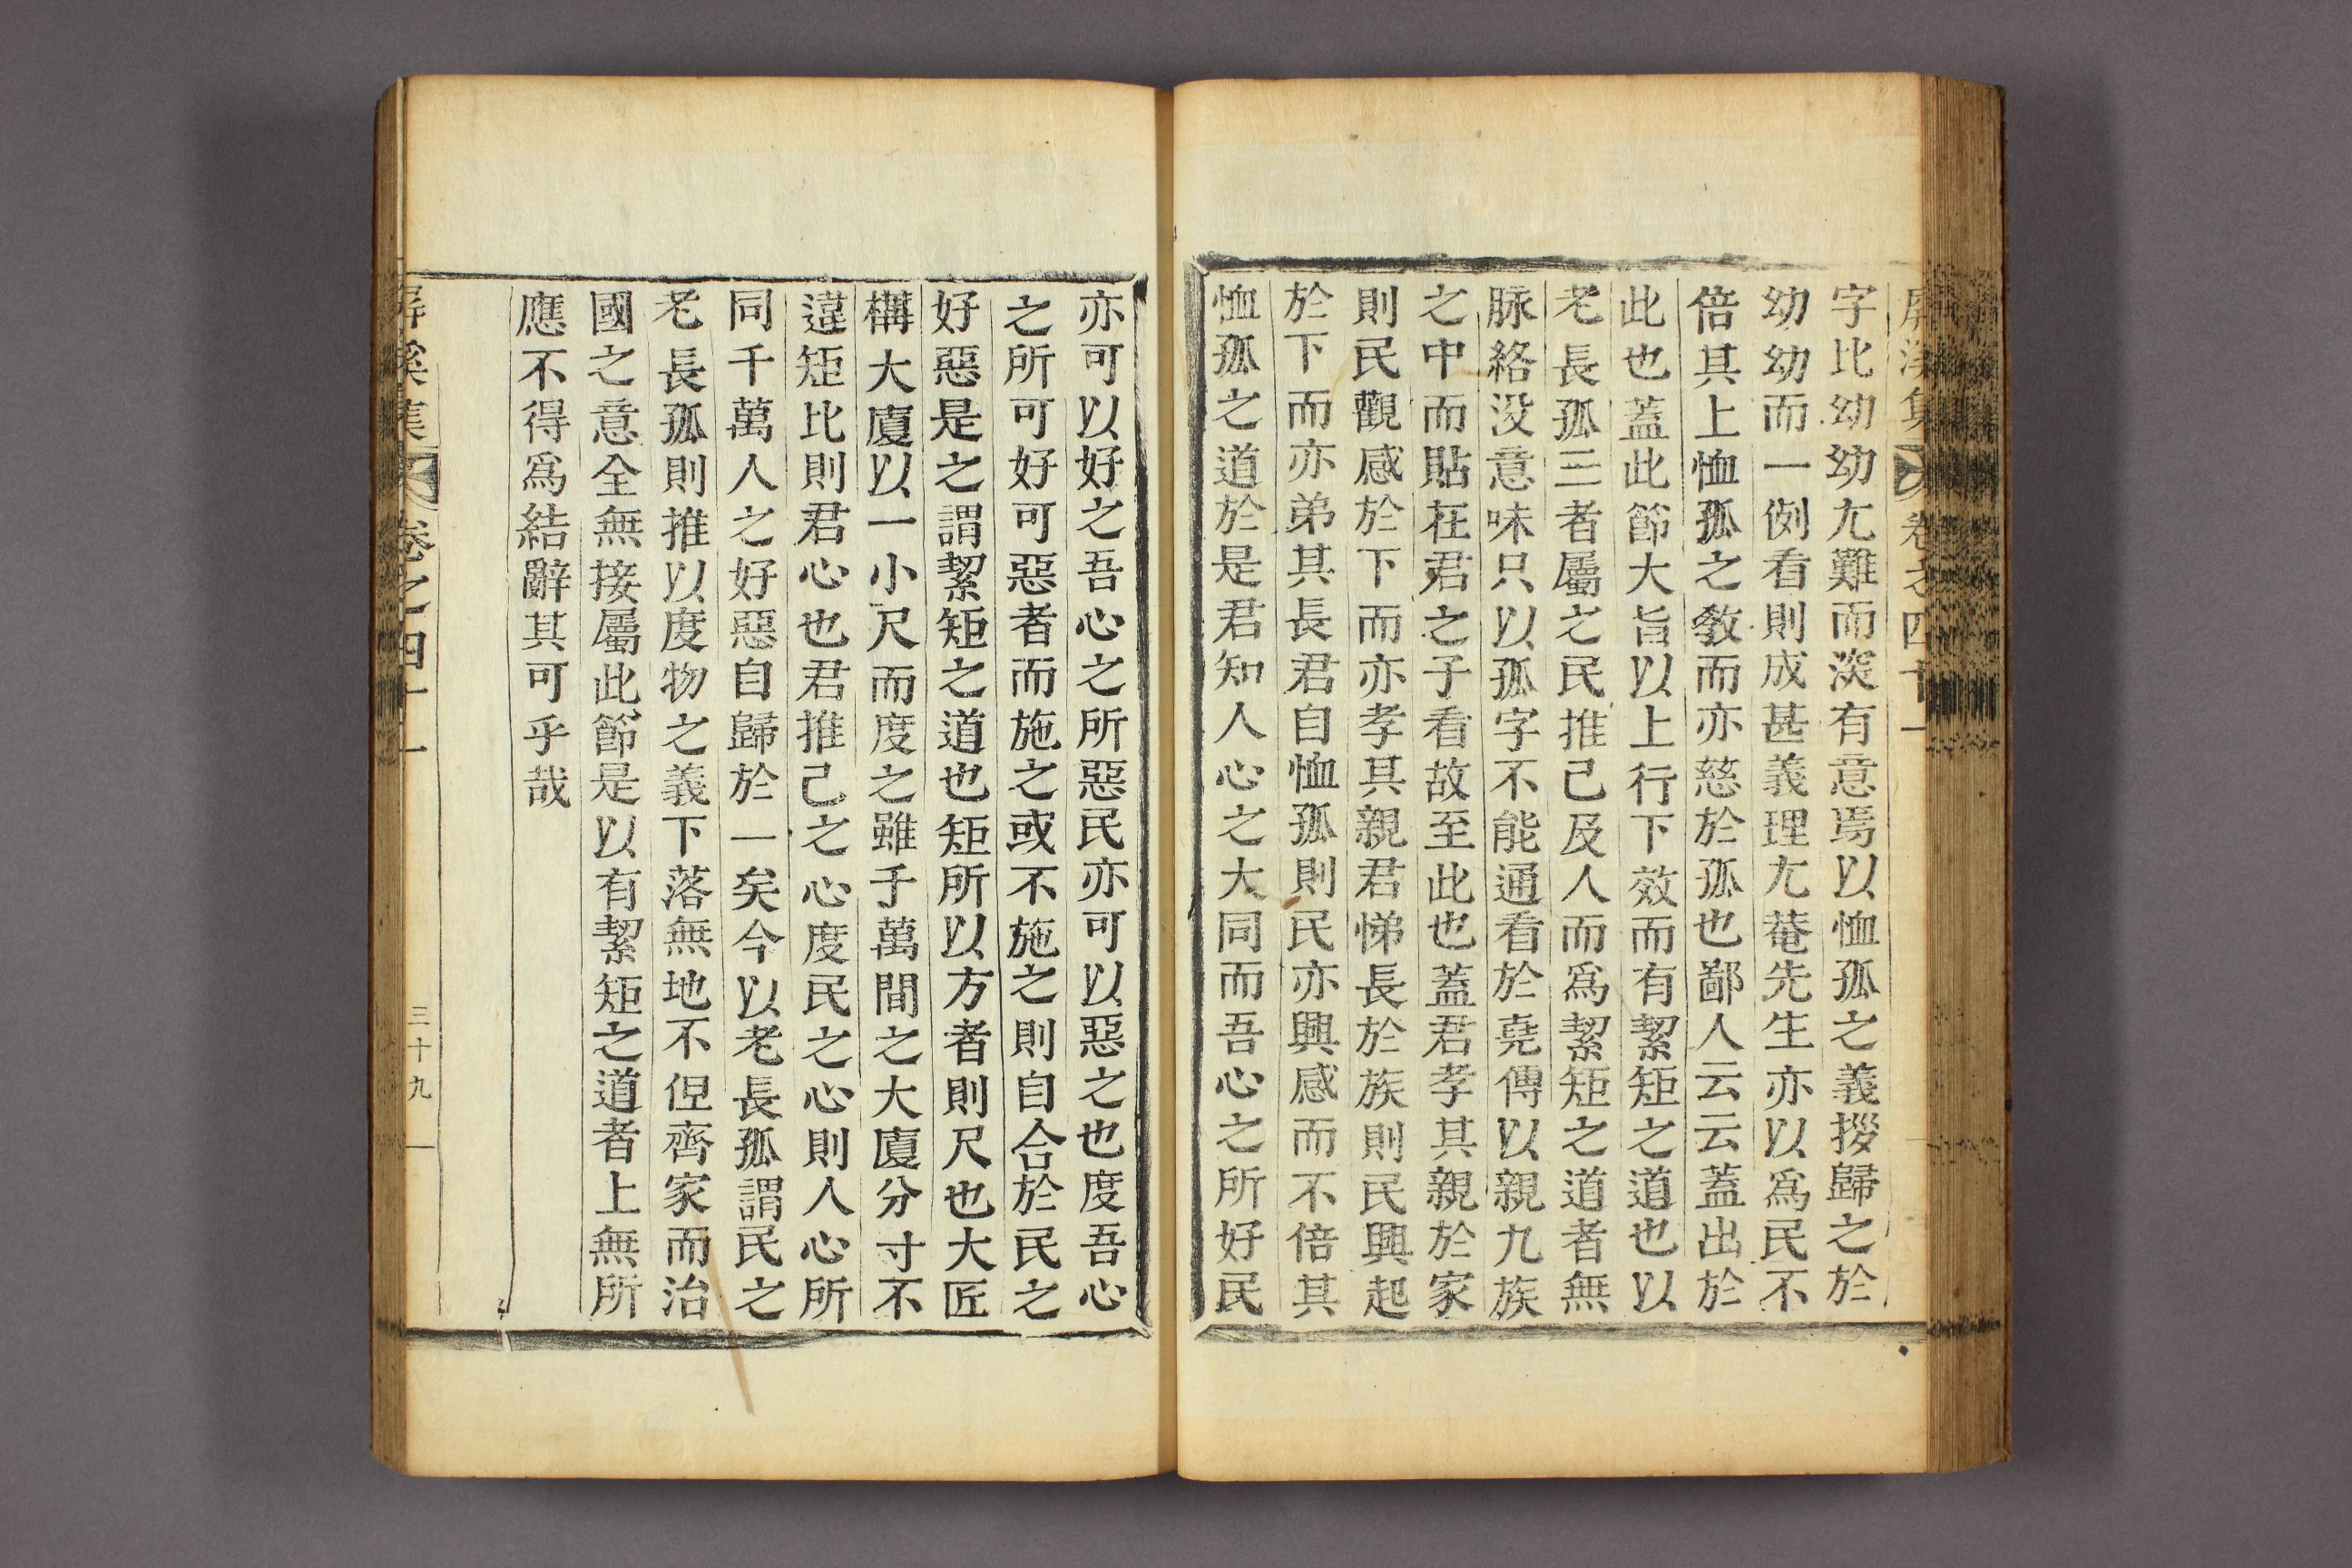 屛溪集 卷之四十一
字比幼幼尤難而㴱有意焉以恤孤之義拶歸之於
幼幼而一例看則成甚義理尤菴先生亦以爲民不
倍其上恤孤之敎而亦慈於孤也鄙人云云蓋出於
此也蓋此節大旨以上行下效而有絜矩之道也以
老長孤三者屬之民推己及人而爲絜矩之道者無
脉絡沒意味只以孤字不能通看於堯傳以親九族
之中而貼在君之子看故至此也蓋君孝其親於家
則民觀感於下而亦孝其親君悌長於族則民興起
於下而亦弟其長君自恤孤則民亦興感而不倍其
恤孤之道於是君知人心之大同而吾心之所好民
亦可以好之吾心之所惡民亦可以惡之也度吾心
之所可好可惡者而施之或不施之則自合於民之
好惡是之謂絜矩之道也矩所以方者則尺也大匠
構大廈以一小尺而度之雖千萬間之大廈分寸不
違矩比則君心也君推己之心度民之心則人心所
同千萬人之好惡自歸於一矣今以老長孤謂民之
老長孤則推以度物之義下落無地不但齊家而治
國之意全無接屬此節是以有絜矩之道者上無所
應不得爲結辭其可乎哉
屛溪集 卷之四十一
三十九